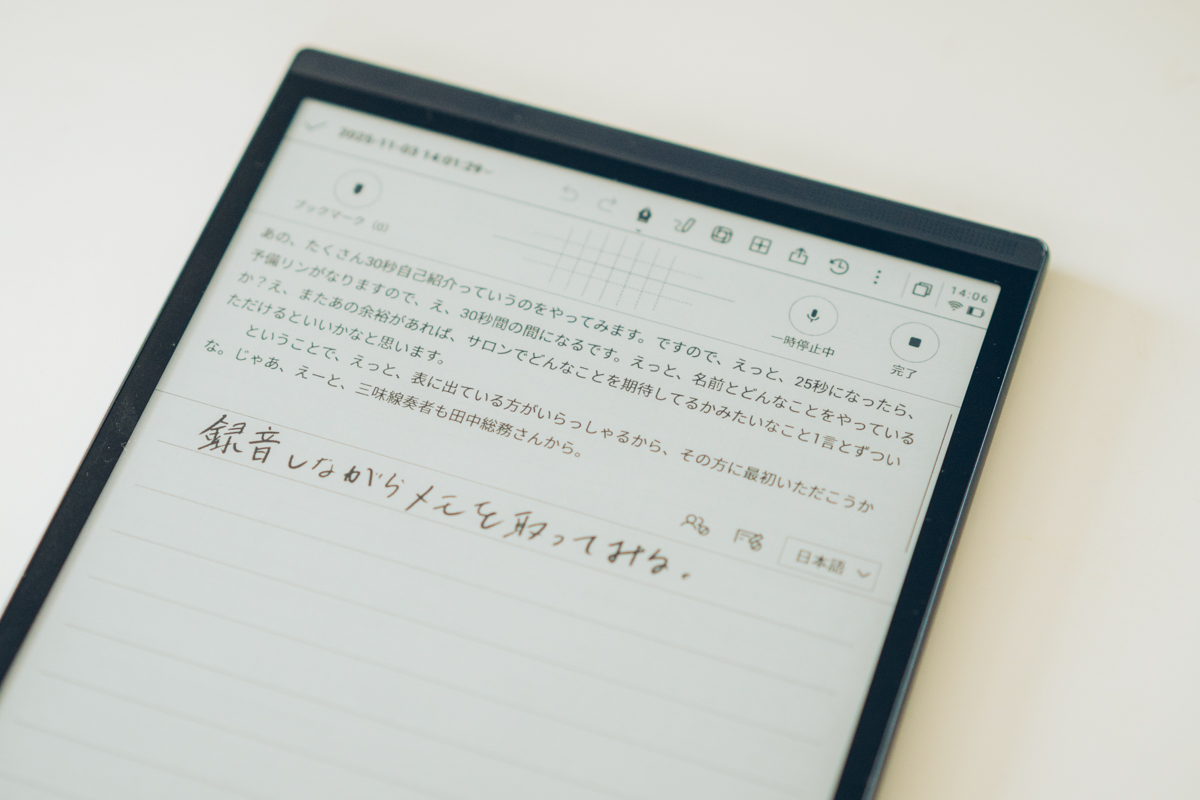 2025-11-03 14:01:29~
14:06
ブックマーク (0)
一時停止中
完了
あの、たくさん30秒自己紹介っていうのをやってみます。ですので、えっと、25秒になったら、
予備リンがなりますので、え、30秒間の間になるです。えっと、名前とどんなことをやっている
か？え、またあの余裕があれば、サロンでどんなことを期待してるかみたいなこと1言とずつい
ただけるといいかなと思います。
ということで、えっと、表に出ている方がいらっしゃるから、その方に最初いただこうか
な。じゃあ、えーと、三味線奏者も田中総務さんから。
日本語
録音しながらメモを取ってみる。